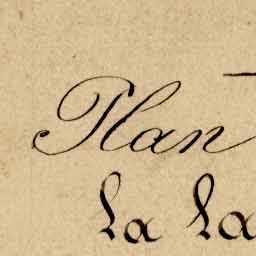 Plan
la la